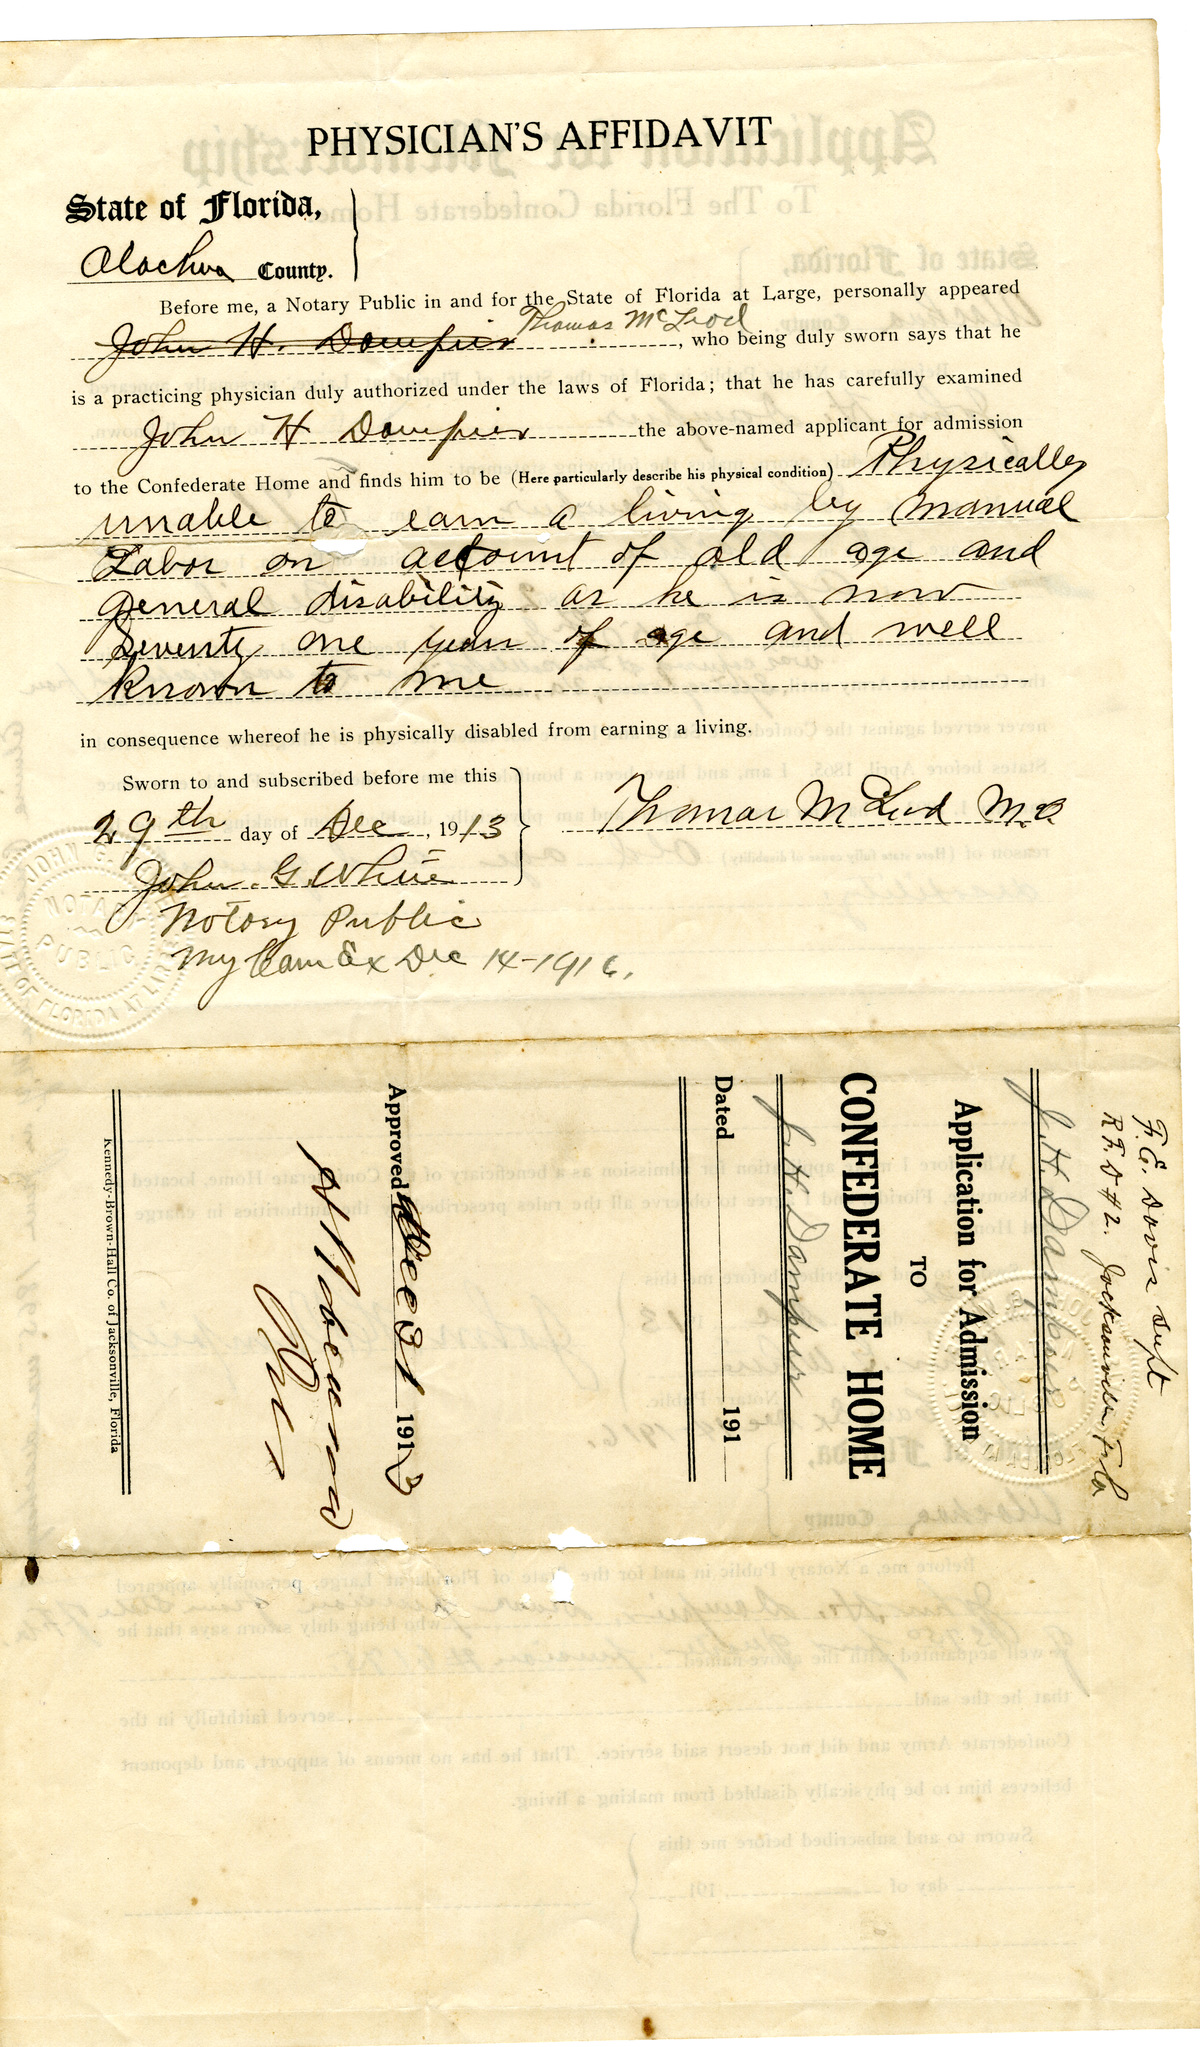 PHYSICIAN'S AFFIDAVIT
State of Florida,
Alachua County.
Before me, a Notary Public in and for the State of Florida at Large, personally appeared
Thomas McLeod
John H. Dampier, who being duly sworn says that he
is a practicing physician duly authorized under the laws of Florida; that he has carefully examined
John H Dampier the above-named applicant for admission
to the Confederate Home and finds him to be (Here particularly describe his physical condition) Physically
unable to earn a living by manual
Labor on account of old age and
general disability as he is now
Seventy one years of age and well
known to me
in consequence whereof he is physically disabled from earning a living.
Sworn to and subscribed before me this
29th day of Dec, 1913
Thomas McLeod M.D.
John G. White
Notary Public
My Com Ex Dec 14-1916.
F. E. Davis Supt
R.F.D #2. Jacksonville, Fla
J. H. Dampier
Application for Admission
TO
CONFEDERATE HOME
J. H. Dampier
Dated 191
Approved Dec 31 1913
Kennedy-Brown-Hall Co. of Jacksonville, Florida